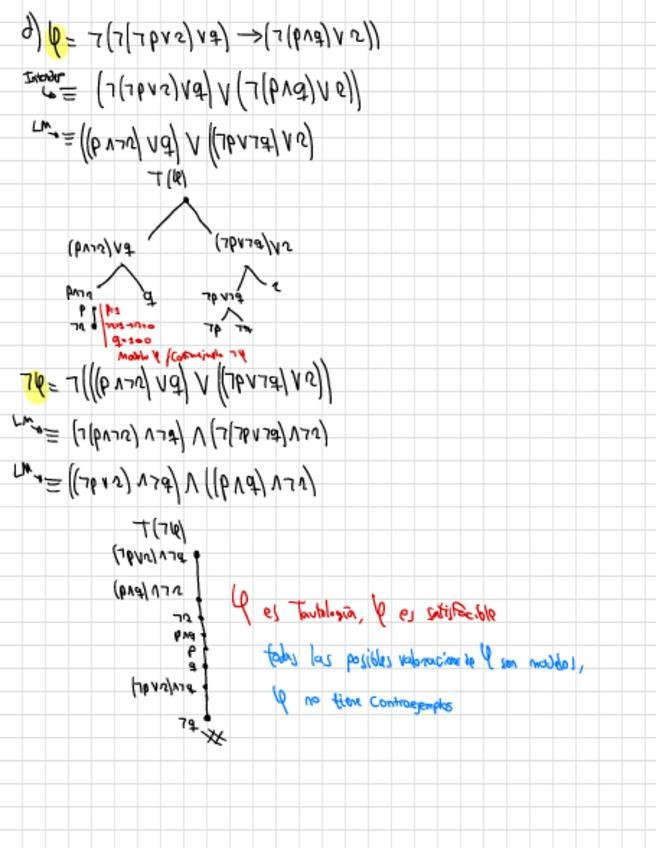 d) φ = ¬(¬(¬p∨r)∨q) → (¬(p∧q)∨r))
≡ (¬(¬p∨r)∨q) ∨ (¬(p∧q)∨r))
LM → ≡ ((p∧¬r)∨q) ∨ ((¬p∨¬q)∨r)
T(φ)
(p∧¬r)∨q (¬p∨¬q)∨r
p∧¬r q ¬p∨¬q r
p p=1
¬r ¬p ¬q
Modelo φ / Contraejemplo ¬φ
¬φ = ¬(((p∧¬r)∨q) ∨ ((¬p∨¬q)∨r))
LM → ≡ (¬(p∧¬r)∧¬q) ∧ (¬(¬p∨¬q)∧¬r)
LM → ≡ ((¬p∨r)∧¬q) ∧ ((p∧q)∧¬r)
T(¬φ)
(¬p∨r)∧¬q
(p∧q)∧¬r
¬r
p∧q
p
q
(¬p∨r)∧¬q
¬q
φ es Tautología, φ es satisfacible
todas las posibles valoraciones de φ son modelos,
φ no tiene contraejemplos